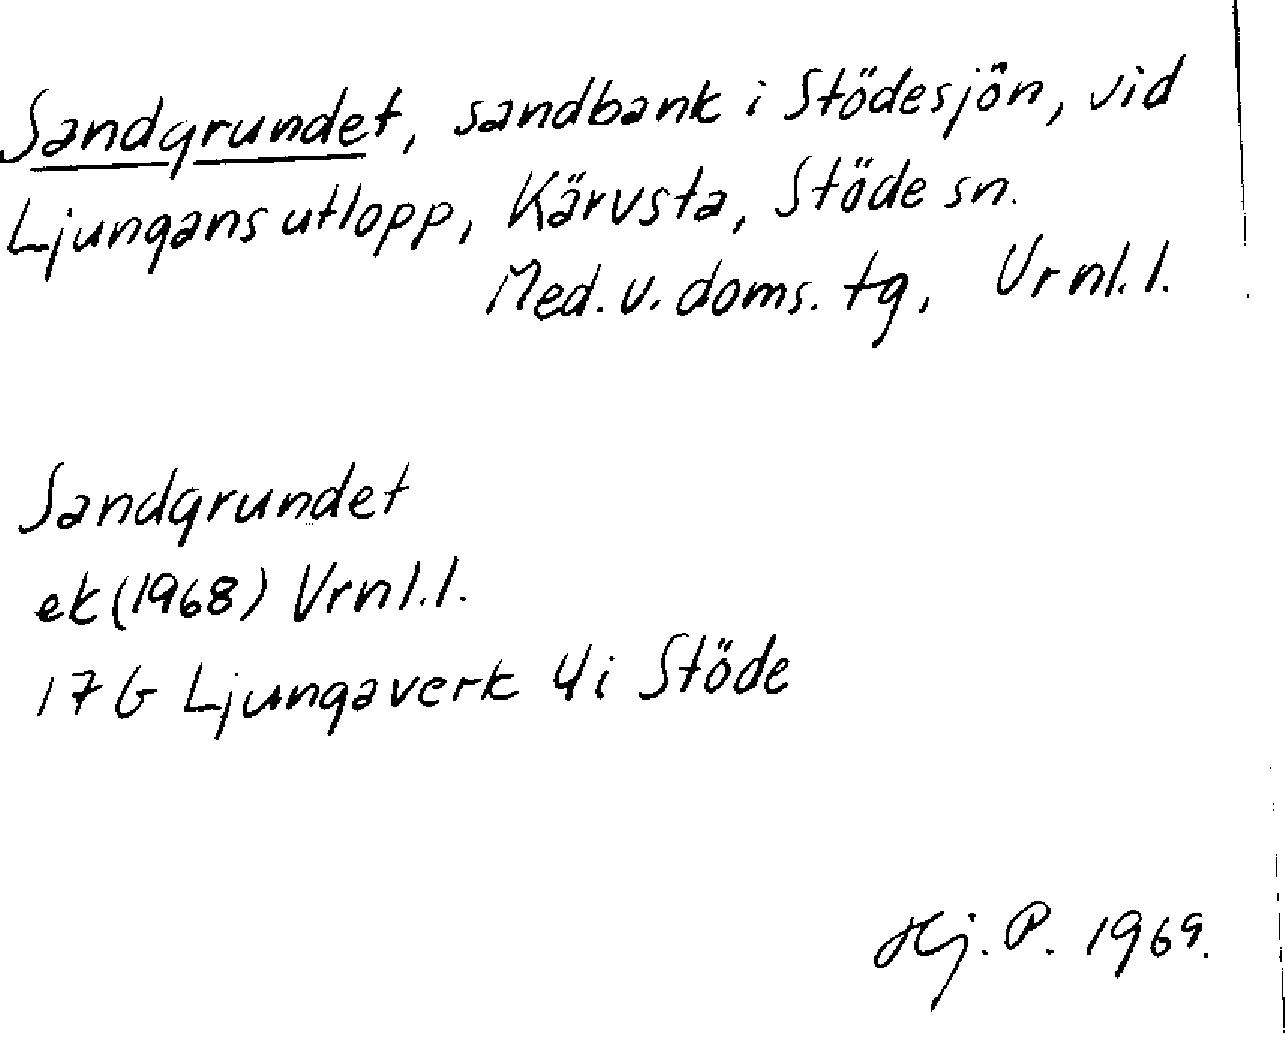 Sandgrundet, sandbank i Stödesjön, vid
Ljungans utlopp, Kärvsta, Stöde sn.
Med. v. doms. tg, Vrnl. l.
Sandgrundet
ek (1968) Vrnl. l.
17 G Ljungaverk 4i Stöde
Hj. P. 1969.